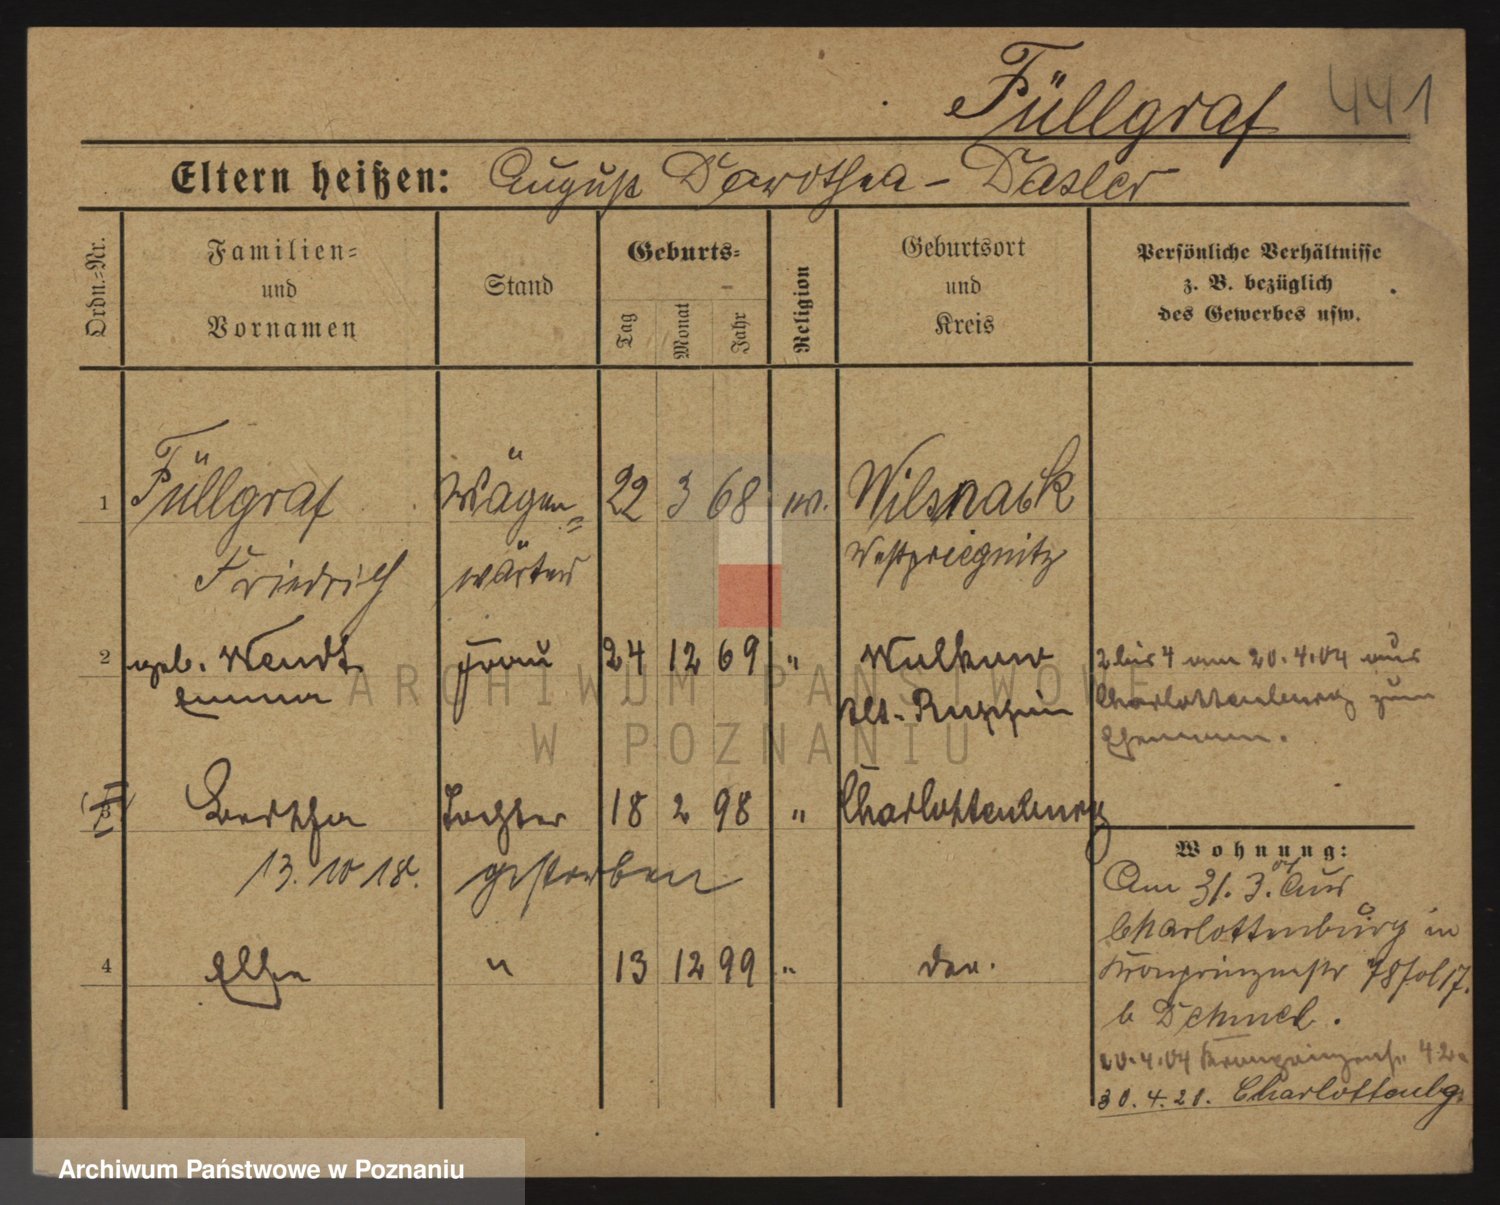 Füllgraf 441
Eltern heißen: August Dorothea - Dasler
Ordn.=Nr.
Familien=
und
Vornamen
Stand
Geburts=
Tag
Monat
Jahr
Religion
Geburtsort
und
Kreis
Persönliche Verhältnisse
z. B. bezüglich
des Gewerbes usw.
1 Füllgraf Wagen= 22 3 68 ev. Wilsnack
Friedrich wärter Westpriegnitz
2 geb. Wendt Frau 24 12 69 " Wulkow
Emma Alt-Ruppin
2 bis 4 am 20.4.04 aus
Charlottenburg zum
Ehemann.
3 Bertha Tochter 18 2 98 " Charlottenburg
13. 10 18. gestorben
4 Else " 13 12 99 " do.
Wohnung:
Am 31. 3. 04 aus
Charlottenburg in
Kronprinzenstr 78 fol 17.
b
20.4.04 Kronprinzenstr. 42
30. 4. 21. Charlottenbg.
ARCHIWUM PAŃSTWOWE
W POZNANIU
Archiwum Państwowe w Poznaniu